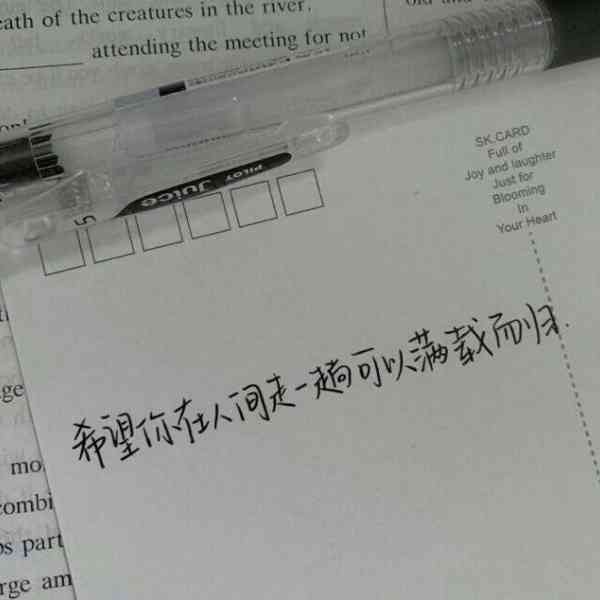 eath of the creatures in the river.
attending the meeting for not
SK.CARD
Full of
Joy and laughter
Just for
Blooming
In
Your Heart
PILOT Juice
希望你在人间走一趟可以满载而归.
ge
mo
combi
os part
rge am